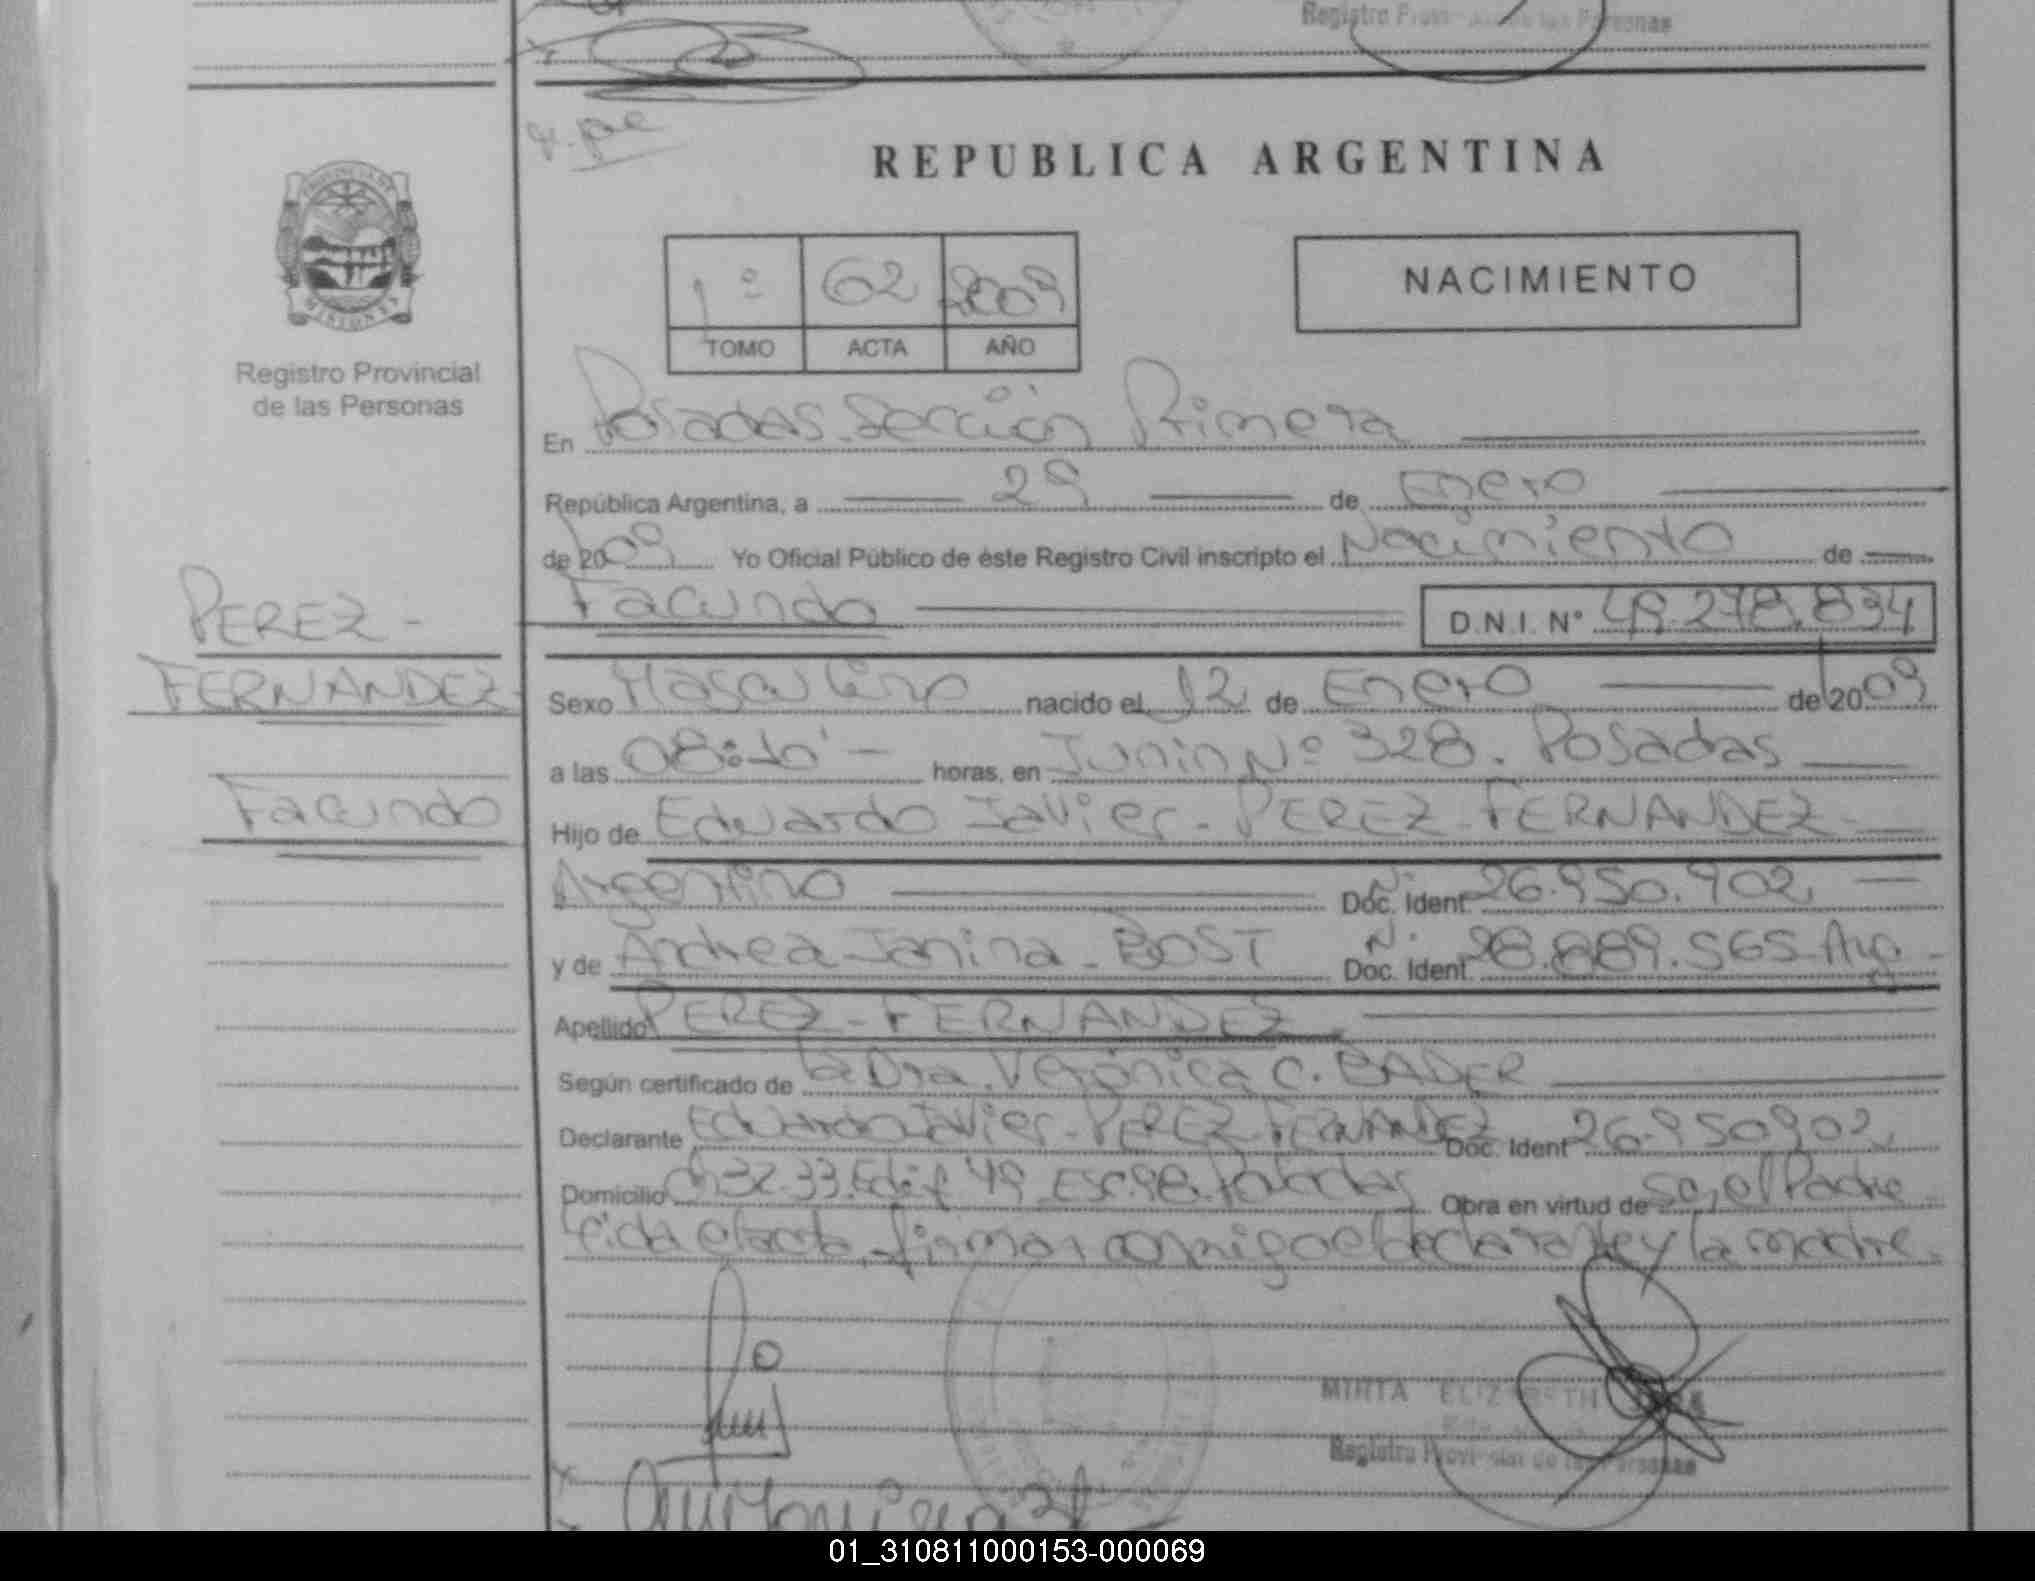 Registro Provincial de las Personas
REPUBLICA ARGENTINA
1º 62 2009
NACIMIENTO
TOMO ACTA AÑO
PROVINCIA DE
MISIONES
Registro Provincial
de las Personas
En Posadas. Sección Primera
República Argentina, a 29 de Enero
de 2009 Yo Oficial Público de éste Registro Civil inscripto el Nacimiento de
Facundo D.N.I. Nº 49.278.834
PEREZ -
FERNANDEZ
Facundo
Sexo Masculino nacido el 12 de Enero de 2009
a las 08:10' - horas, en Junin Nº 328. Posadas
Hijo de Eduardo Javier - PEREZ - FERNANDEZ -
Argentino Doc. Ident N. 26.950.902
y de Andrea Janina - BOST Doc. Ident N. 28.889.565 - Arg -
Apellido PEREZ - FERNANDEZ
Según certificado de la Dra. Verónica C. BADER
Declarante Eduardo Javier - PEREZ - FERNANDEZ Doc. Ident 26.950.902
Domicilio Ch 32-33. Edif 49 Posadas Obra en virtud de ser el Padre
el acta, firman conmigo el declarante y la madre.
MIRTA ELIZABETH
Registro Provincial de las Personas
01_310811000153-000069